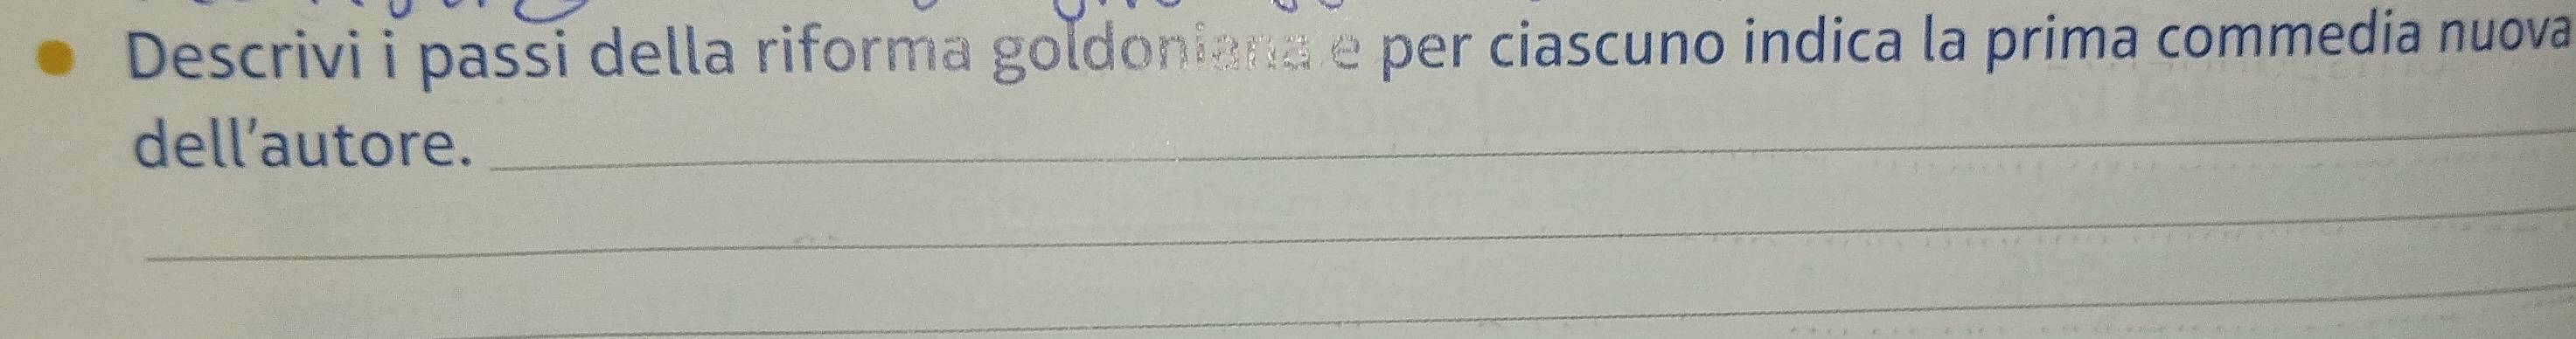 Descrivi i passi della riforma goldoniana e per ciascuno indica la prima commedia nuova
dell'autore.